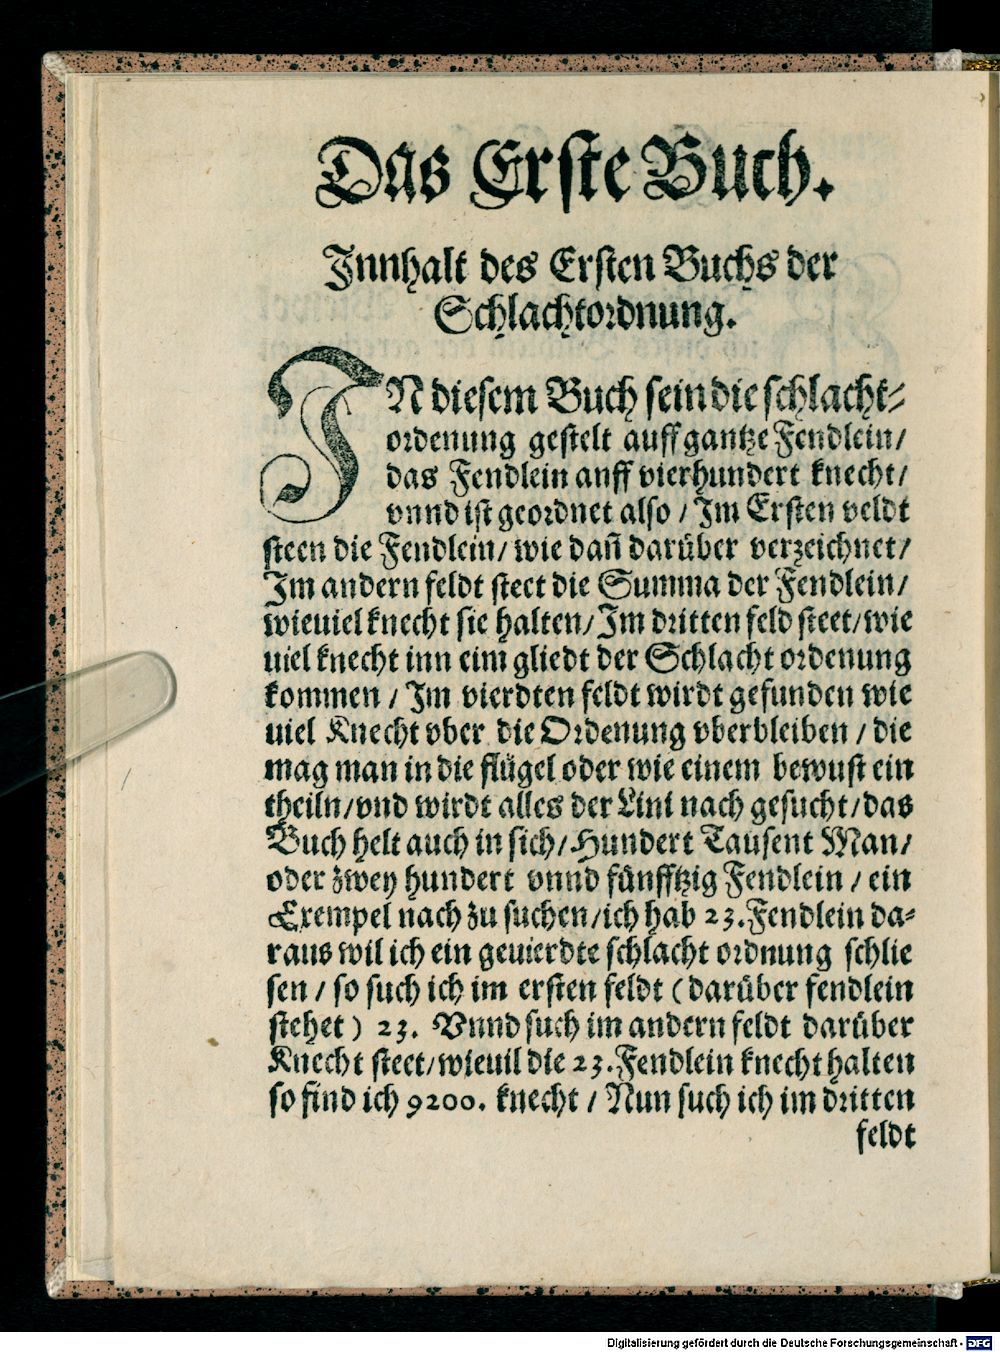 Das Erste Buch.
Innhalt des Ersten Buchs der
Schlachtordnung.
IN diesem Buch sein die schlacht⸗
ordenung gestelt auff gantze Fendlein/
das Fendlein anff vierhundert knecht/
vnnd ist geordnet also / Im Ersten veldt
steen die Fendlein/ wie dañ darüber verzeichnet/
Im andern feldt steet die Summa der Fendlein/
wieuiel knecht sie halten/ Im dritten feld steet/ wie
uiel knecht inn eim gliedt der Schlacht ordenung
kommen / Im vierdten feldt wirdt gefunden wie
uiel Knecht vber die Ordenung vberbleiben / die
mag man in die flügel oder wie einem bewust ein
theiln/ vnd wirdt alles der Lini nach gesucht/ das
Buch helt auch in sich/ Hundert Tausent Man/
oder zwey hundert vnnd fünfftzig Fendlein / ein
Exempel nach zu suchen/ ich hab 23. Fendlein da⸗
raus wil ich ein geuierdte schlacht ordnung schlie
sen / so such ich im ersten feldt ( darüber fendlein
stehet ) 23. Vnnd such im andern feldt darüber
Knecht steet/ wieuil die 23. Fendlein knecht halten
so find ich 9200. knecht / Nun such ich im dritten
feldt
Digitalisierung gefördert durch die Deutsche Forschungsgemeinschaft - DFG